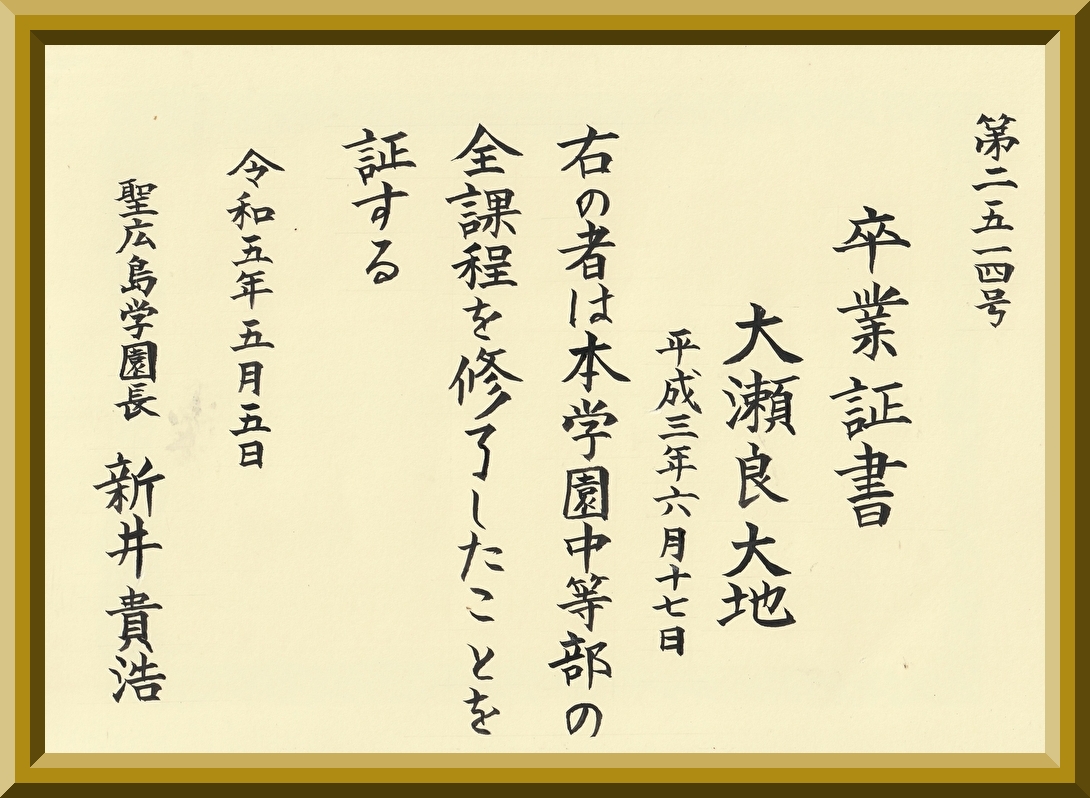 第二五一四号
卒業証書
大瀬良大地
平成三年六月十七日
右の者は本学園中等部の
全課程を修了したことを
証する
令和五年五月五日
聖広島学園長　新井貴浩